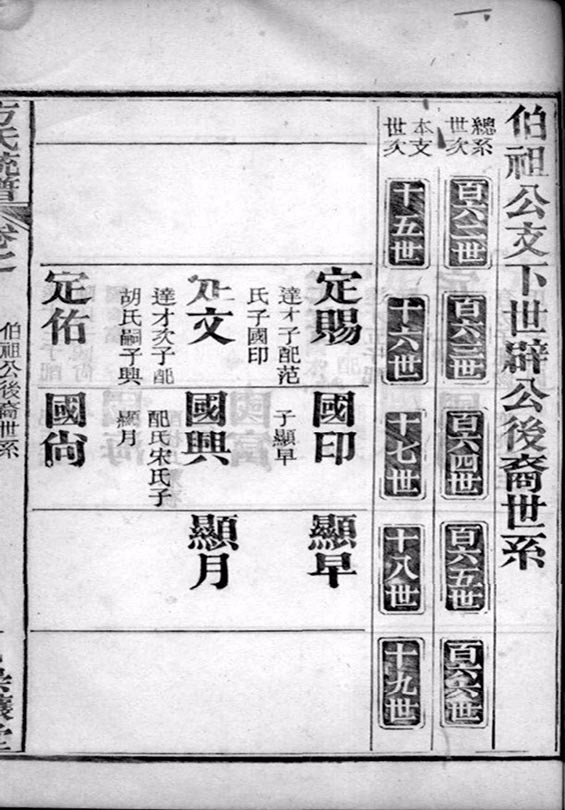 伯祖公文下世辟公後裔世系
總系世次
本支世次
百六二世
百六三世
百六四世
百六五世
百六六世
十五世
十六世
十七世
十八世
十九世
定賜
達才子配范
氏子國印
國印
子顯早
顯早
定文
達才次子配
胡氏嗣子興
國興
配氏宋氏子
顯月
顯月
定佑
國尙
方氏統譜
卷七
伯祖公後裔世系